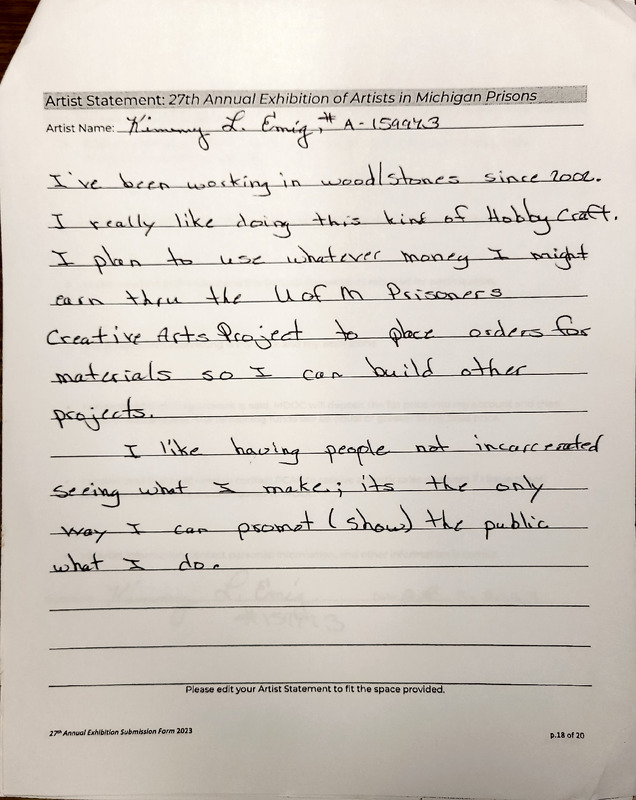 Artist Statement: 27th Annual Exhibition of Artists in Michigan Prisons
Artist Name: Kimmy L. Emig, # A-159973
I've been working in wood/stones since 2002.
I really like doing this kind of Hobby Craft.
I plan to use whatever money I might
earn thru the U of M Prisoners
Creative Arts Project to place orders for
materials so I can build other
projects.
I like having people not incarcerated
seeing what I make; its the only
way I can promot (show) the public
what I do.
Please edit your Artist Statement to fit the space provided.
27th Annual Exhibition Submission Form 2023
p.18 of 20